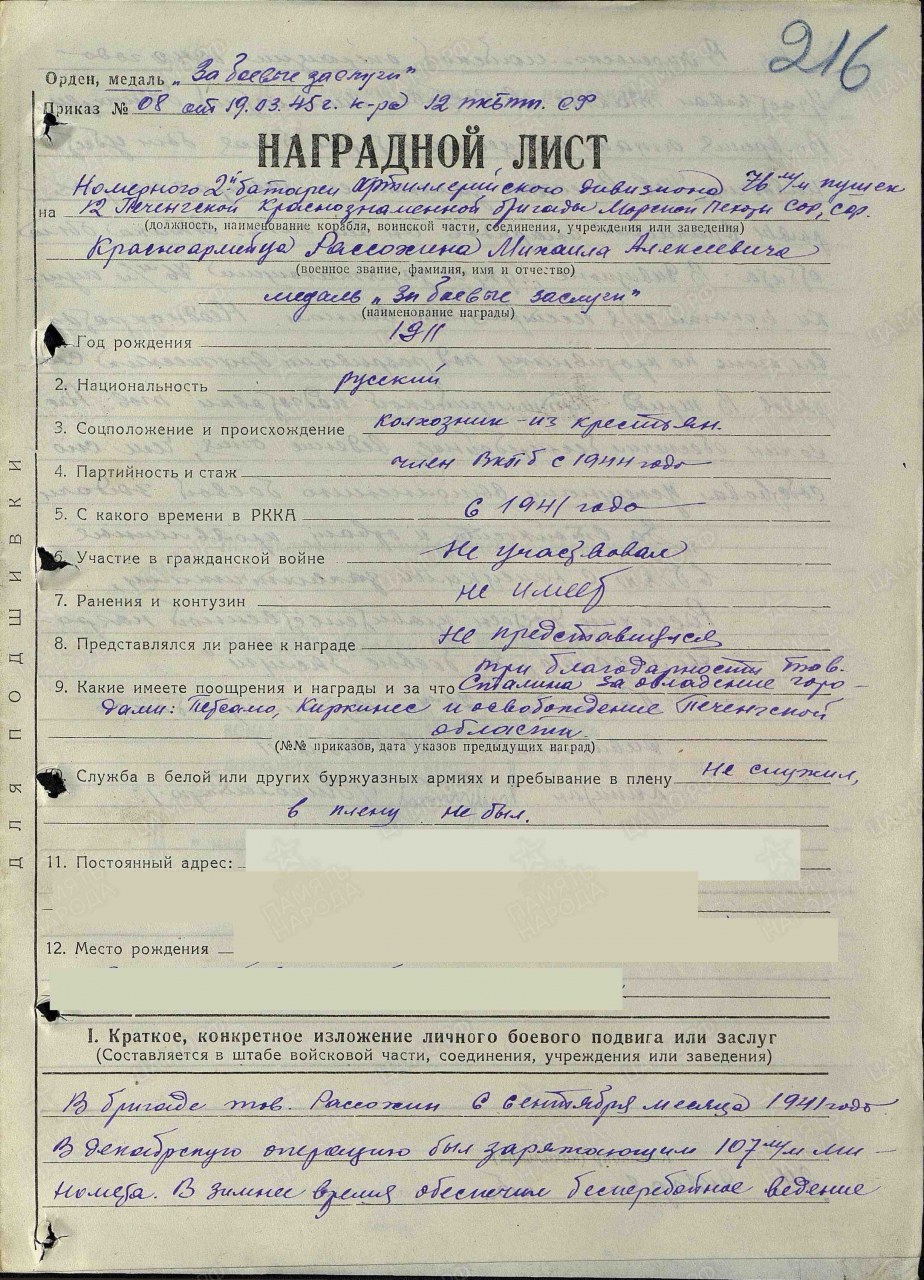 216
Орден, медаль „За боевые заслуги"
Приказ № 08 от 19.03.45г. к-ра 12 ткбмп. СФ
НАГРАДНОЙ ЛИСТ
Номерного 2й батареи артиллерийского дивизиона 76 м/м пушек
на 12 Печенгской Краснознаменной бригады Морской Пехоты СОР, СФ.
(должность, наименование корабля, воинской части, соединения, учреждения или заведения)
Красноармейца Рассохина Михаила Алексеевича
(военное звание, фамилия, имя и отчество)
медаль „За боевые заслуги"
(наименование награды)
Год рождения 1911
2. Национальность русский
3. Соцположение и происхождение колхозник-из крестьян.
4. Партийность и стаж член ВКПб с 1944 года
5. С какого времени в РККА С 1941 года
6. Участие в гражданской войне Не участвовал
7. Ранения и контузии не имеет
8. Представлялся ли ранее к награде Не представлялся
три благодарности тов.
9. Какие имеете поощрения и награды и за что Сталина за овладение горо-
дами: Петсамо, Киркинес и освобождение Печенгской
области.
(№№ приказов, дата указов предыдущих наград)
Служба в белой или других буржуазных армиях и пребывание в плену Не служил,
в плену не был.
11. Постоянный адрес:
12. Место рождения
I. Краткое, конкретное изложение личного боевого подвига или заслуг
(Составляется в штабе войсковой части, соединения, учреждения или заведения)
В бригаде тов. Рассохин с сентября месяца 1941 года.
В декабрскую операцию был заряжающим 107 м/м ми-
номета. В зимнее время обеспечил бесперебойное ведение
ДЛЯ ПОДШИВКИ
ПАМЯТЬ НАРОДА